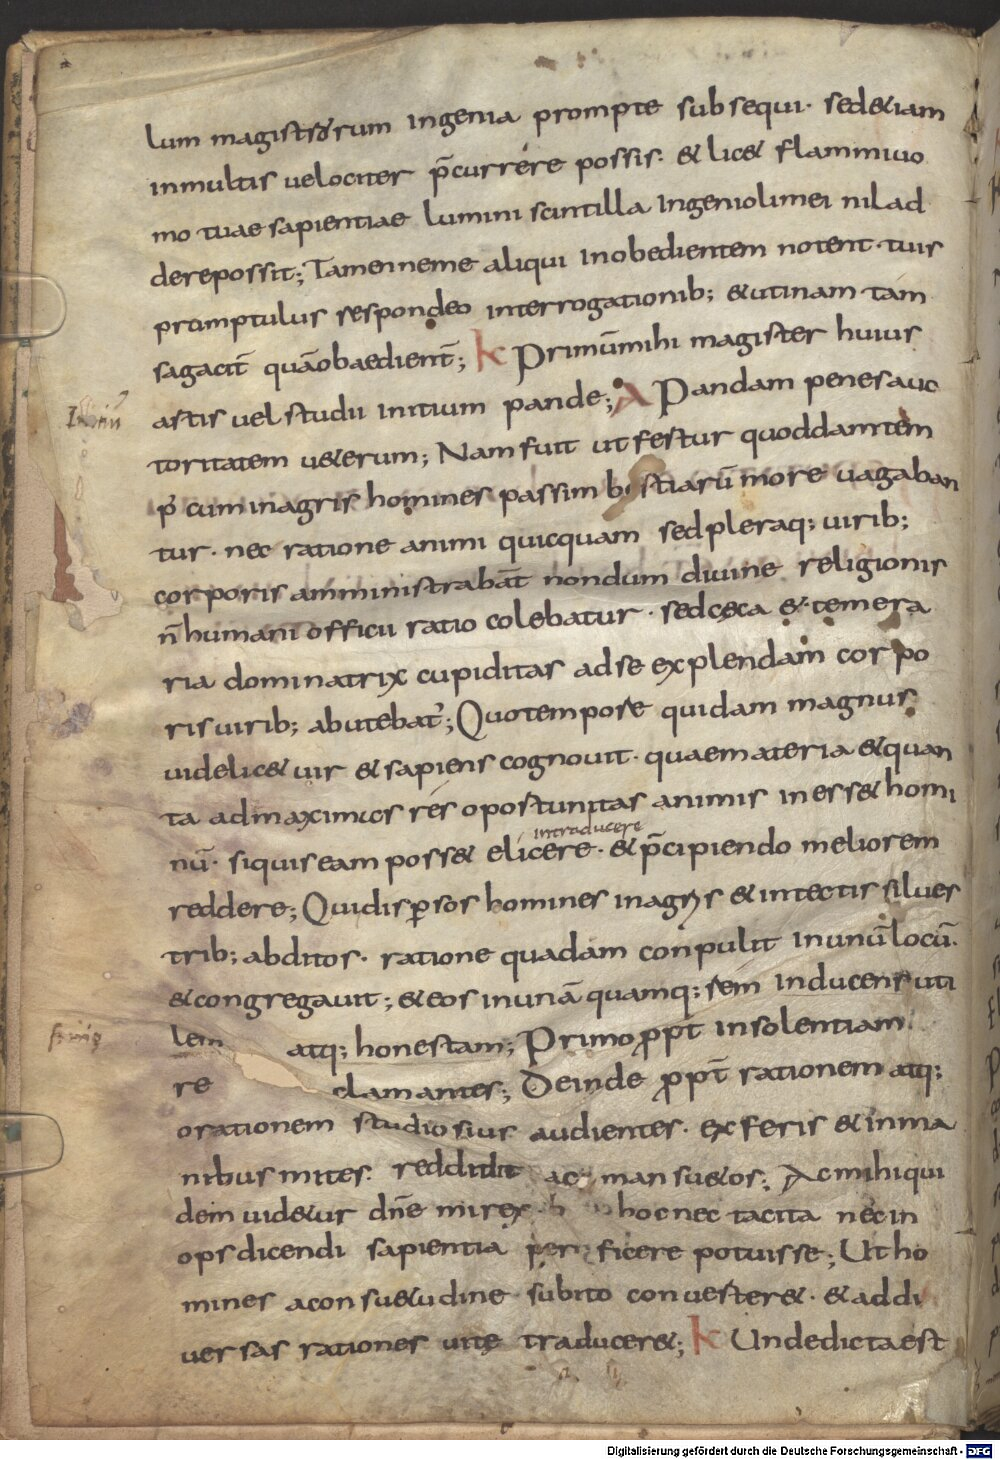 lum magistrorum ingenia prompte subsequi· sed&iam
inmultis velociter p̄currere possis· & lic& flammivo
mo tuae sapientiae lumini scintilla ingeniolimei nil ad
derepossit; Tamenneme aliqui inobedientem notent· tuis
promptulus respondeo interrogationib; &utinam tam
sagacit̄ quāobaedient̄; K Primūmihi magister huius
artis vel studii initium pande; A Pandam penes auc
Initiū
toritatem u&erum; Nam fuit ut fertur quoddamtem
p̄ cum inagris homines passim bestiarū more vagaban
tur· nec ratione animi quicquam sed pleraq; virib;
corporis amministrabāt nondum divine religionis
n̄ humani officii ratio colebatur· sed cęca & temera
ria dominatrix cupiditas ad se explendam corpo
ris virib; abutebat̄; Quo tempore quidam magnus
videlic& vir & sapiens cognovit· quae materia & quan
ta ad maximas res oportunitas animis iness& homi
intraducere
nū· siquis eam poss& elicere· & p̄cipiendo meliorem
reddere; Qui dispersos homines in agris & in tectis silves
trib; abditos· ratione quadam conpulit in unū locū·
& congregavit; & eos in unā quamq; rem inducens uti
lem atq; honestam; Primo propt̄ insolentiam
re clamantes; Deinde propt̄ rationem atq;
orationem studiosius audientes· ex feris & inma
nibus mites· reddidit ac mansu&os; Ac mihi qui
dem vid&ur dn̄e mi rex h hoc nec tacita nec in
ops dicendi sapientia perficere potuisse; Ut ho
mines a consu&udine subito converter&· & ad di
versas rationes vitę traducer&; K Unde dicta est
Digitalisierung gefördert durch die Deutsche Forschungsgemeinschaft - DFG